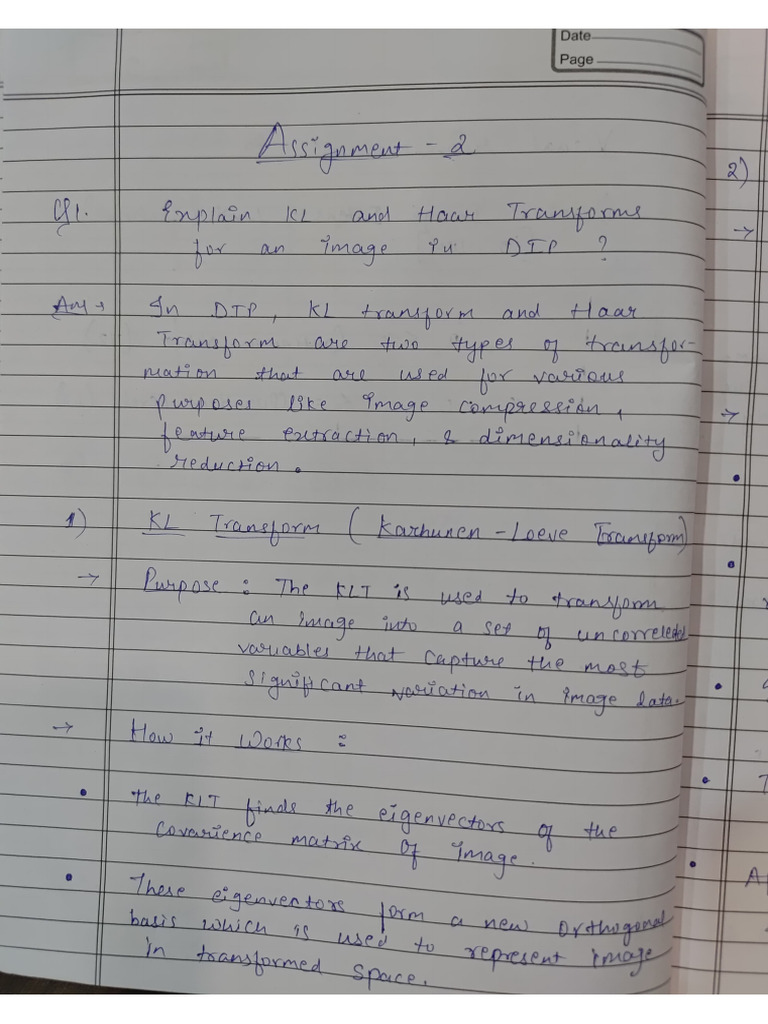 Date
Page
Assignment - 2
Q1. Explain KL and Haar Transforms
for an image in DIP ?
Ans → In DIP, KL transform and Haar
Transform are two types of transfor-
mation that are used for various
purposes like image compression,
feature extraction, & dimensionality
reduction.
1) KL Transform ( Karhunen - Loeve Transform)
→ Purpose : The KLT is used to transform
an image into a set of uncorreleted
variables that capture the most
significant variation in image data.
→ How it works :
• The KLT finds the eigenvectors of the
covarience matrix of image.
• These eigenvectors form a new orthogonal
basis which is used to represent image
in transformed space.
2)
→
→